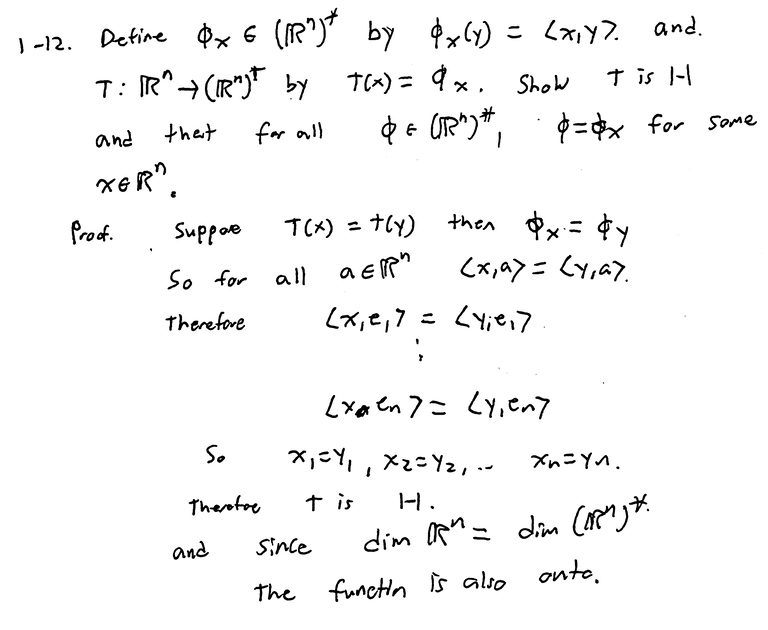 1-12. Define ϕₓ ∈ (ℝⁿ)* by ϕₓ(y) = ⟨x,y⟩. and.
T: ℝⁿ → (ℝⁿ)* by T(x) = ϕₓ. Show T is 1-1
and that for all ϕ ∈ (ℝⁿ)*, ϕ=ϕₓ for some
x∈ℝⁿ.
Proof. Suppoe T(x) = T(y) then ϕₓ = ϕᵧ
So for all a∈ℝⁿ ⟨x,a⟩ = ⟨y,a⟩.
Therefore ⟨x,e₁⟩ = ⟨y,e₁⟩
⋮
⟨x,eₙ⟩ = ⟨y,eₙ⟩
So x₁=y₁, x₂=y₂, .. xₙ=yₙ.
Therefoe T is 1-1.
and since dim ℝⁿ = dim (ℝⁿ)*.
the functin is also onto.